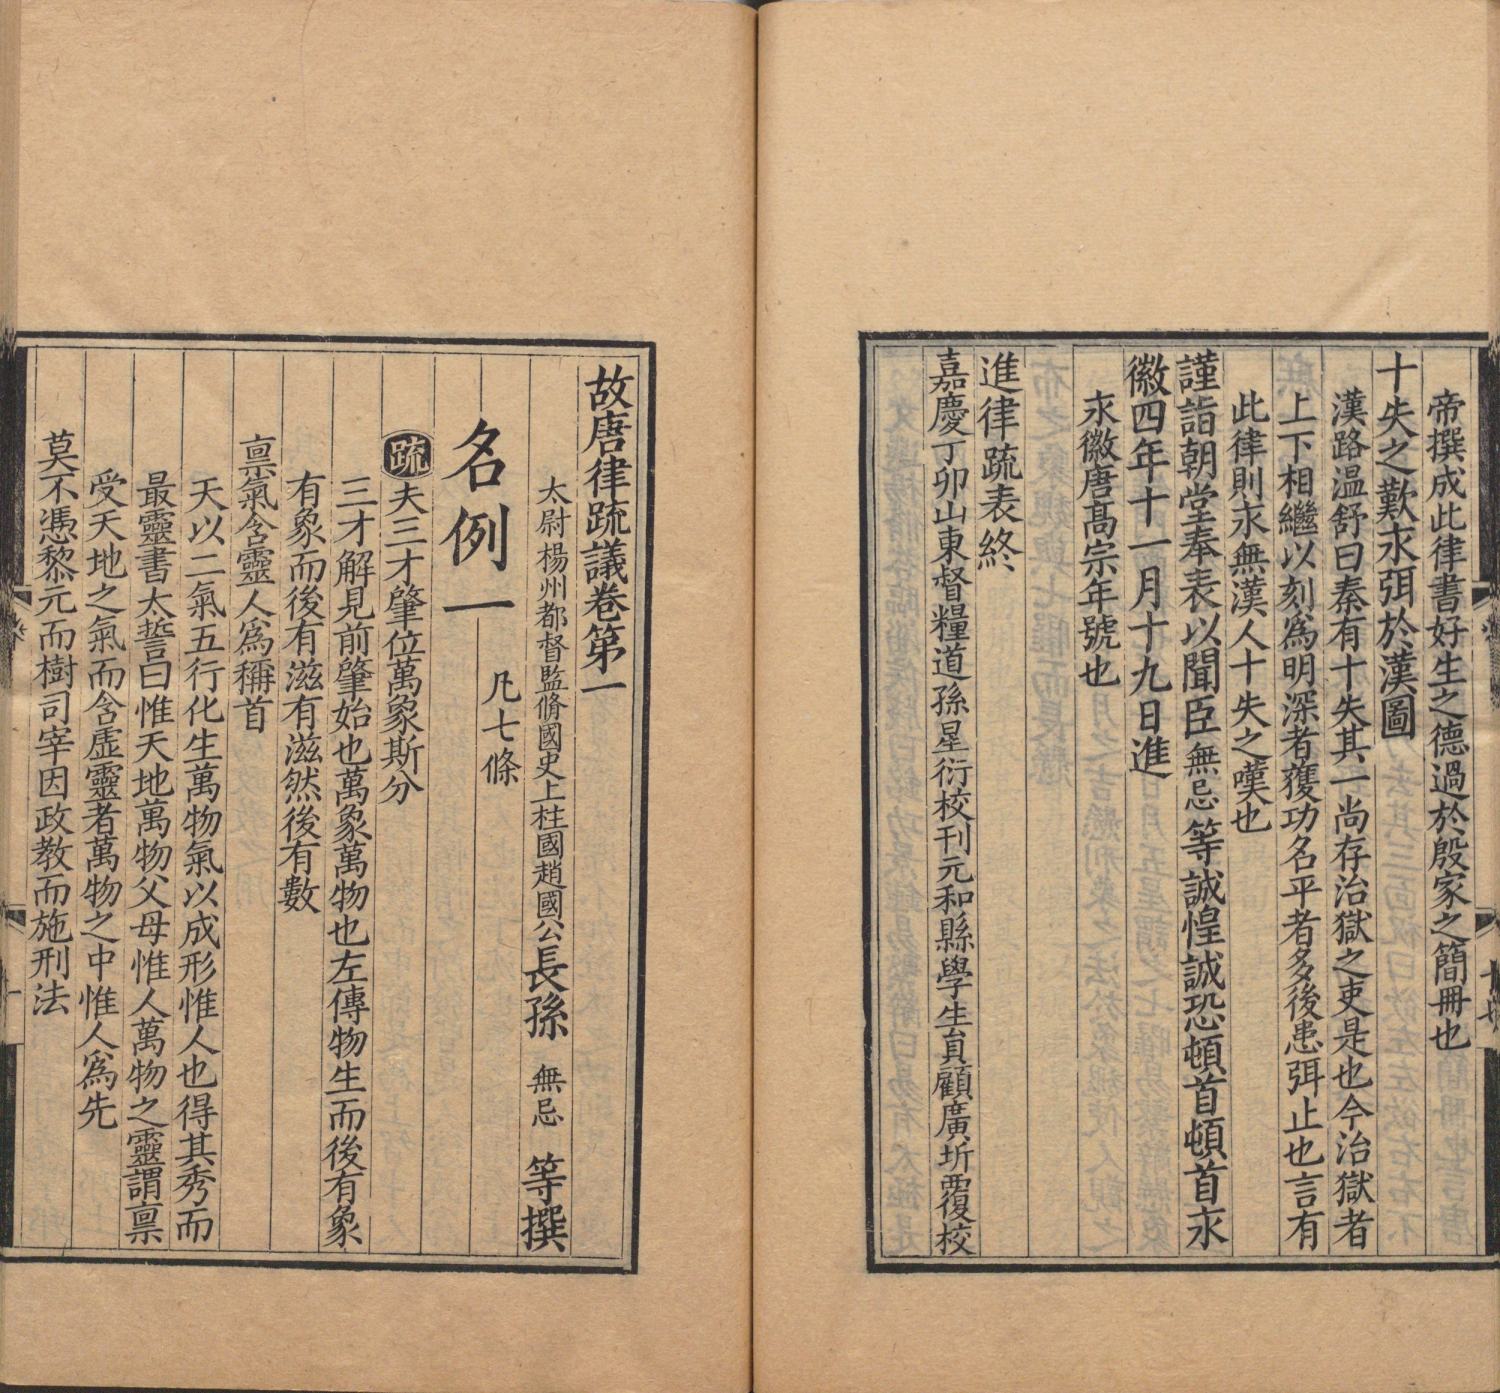 帝撰成此律書好生之德過於殷家之簡冊也
十失之歎永弭於漢圖
漢路温舒曰秦有十失其一尚存治獄之吏是也今治獄者
上下相繼以刻爲明深者獲功名平者多後患弭止也言有
此律則永無漢人十失之嘆也
謹詣朝堂奉表以聞臣無忌等誠惶誠恐頓首頓首永
徽四年十一月十九日進
永徽唐髙宗年號也
進律疏表終
嘉慶丁卯山東督糧道孫星衍校刊元和縣學生員顧廣圻覆校
故唐律疏議卷第一
太尉楊州都督監脩國史上柱國趙國公長孫無忌等撰
名例一凡七條
疏夫三才肇位萬象斯分
三才解見前肇始也萬象萬物也左傳物生而後有象
有象而後有滋有滋然後有數
禀氣含靈人爲稱首
天以二氣五行化生萬物氣以成形惟人也得其秀而
最靈書太誓曰惟天地萬物父母惟人萬物之靈謂禀
受天地之氣而含虛靈者萬物之中惟人爲先
莫不憑黎元而樹司宰因政教而施刑法